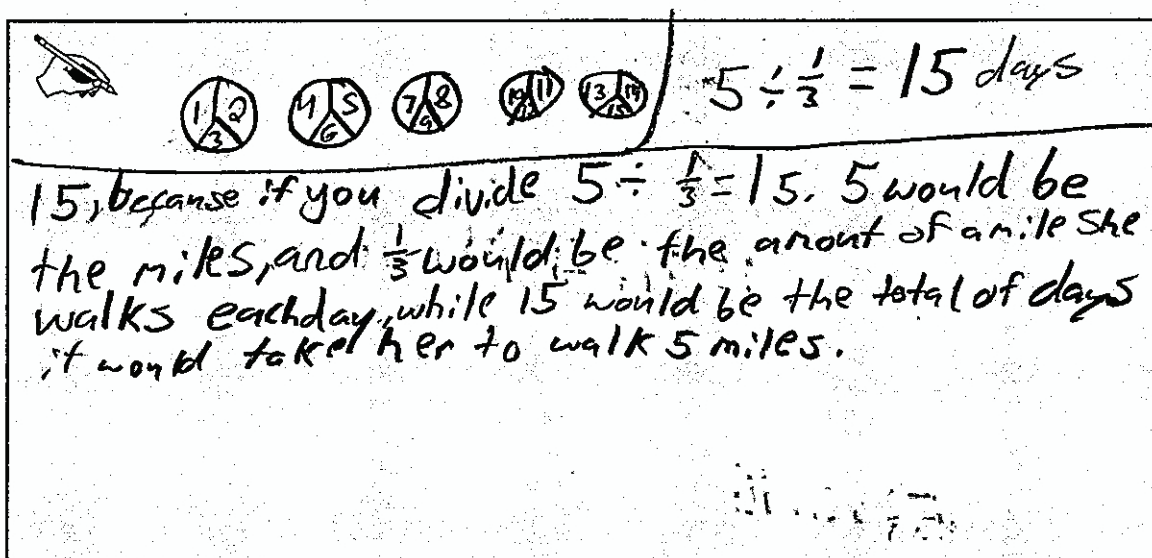 1 2 3 4 5 6 7 8 9 10 11 12 13 14 15
5 ÷ 1/3 = 15 days
15, because if you divide 5 ÷ 1/3 = 15. 5 would be
the miles, and 1/3 would be the amout of a mile she
walks eachday, while 15 would be the total of days
it would take her to walk 5 miles.